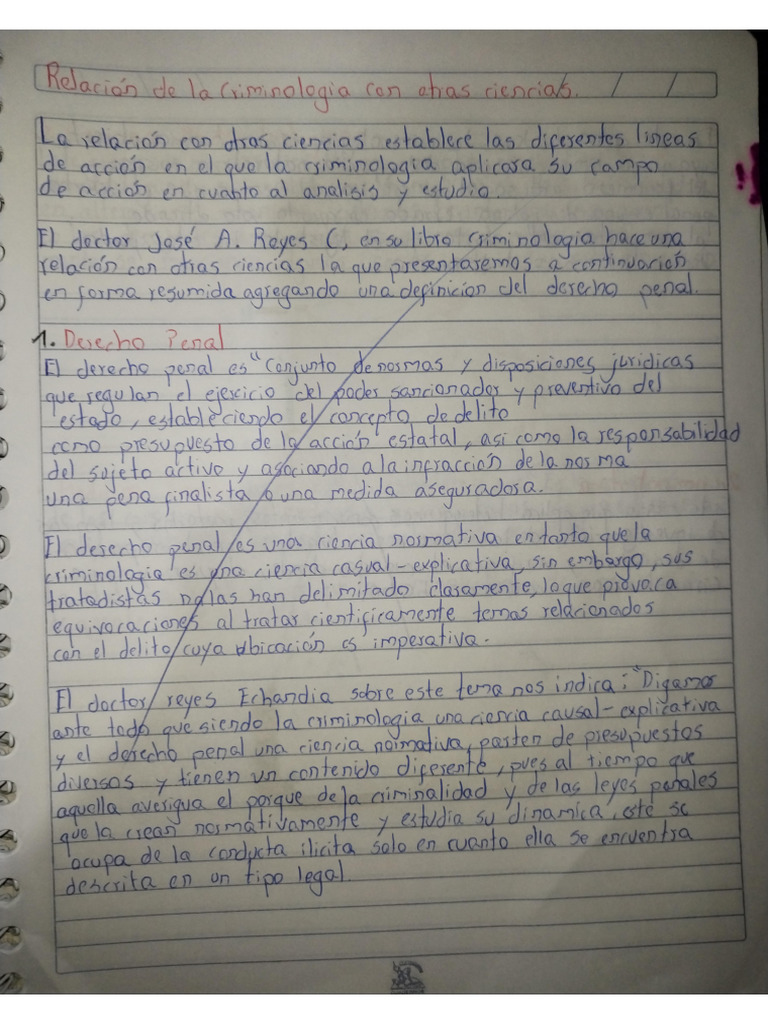 Relación de la Criminologia con otras ciencias. / /
La relación con otras ciencias establece las diferentes lineas
de acción en el que la criminologia aplicara su campo
de acción en cuanto al analisis y estudio.
El doctor José A. Reyes C, en su libro criminologia hace una
relación con otras ciencias la que presentaremos a continuación
en forma resumida agregando una definicion del derecho penal.
1. Derecho Penal
El derecho penal es "Conjunto de normas y disposiciones juridicas
que regulan el ejercicio del poder sancionador y preventivo del
estado, estableciendo el concepto de delito
como presupuesto de la acción estatal, asi como la responsabilidad
del sujeto activo y asociando a la infracción de la norma
una pena finalista o una medida aseguradora.
El derecho penal es una ciencia normativa en tanto que la
criminologia es una ciencia casual-explicativa, sin embargo, sus
tratadistas no las han delimitado claramente, lo que provoca
equivocaciones al tratar cientificamente temas relacionados
con el delito, cuya ubicación es imperativa.
El doctor reyes Echandia sobre este tema nos indica: "Digamos
ante todo que siendo la criminologia una ciencia causal-explicativa
y el derecho penal una ciencia normativa, parten de presupuestos
diversos y tienen un contenido diferente, pues al tiempo que
aquella averigua el porque de la criminalidad y de las leyes penales
que la crean normativamente y estudia su dinamica, este se
ocupa de la conducta ilicita solo en cuanto ella se encuentra
descrita en un tipo legal.